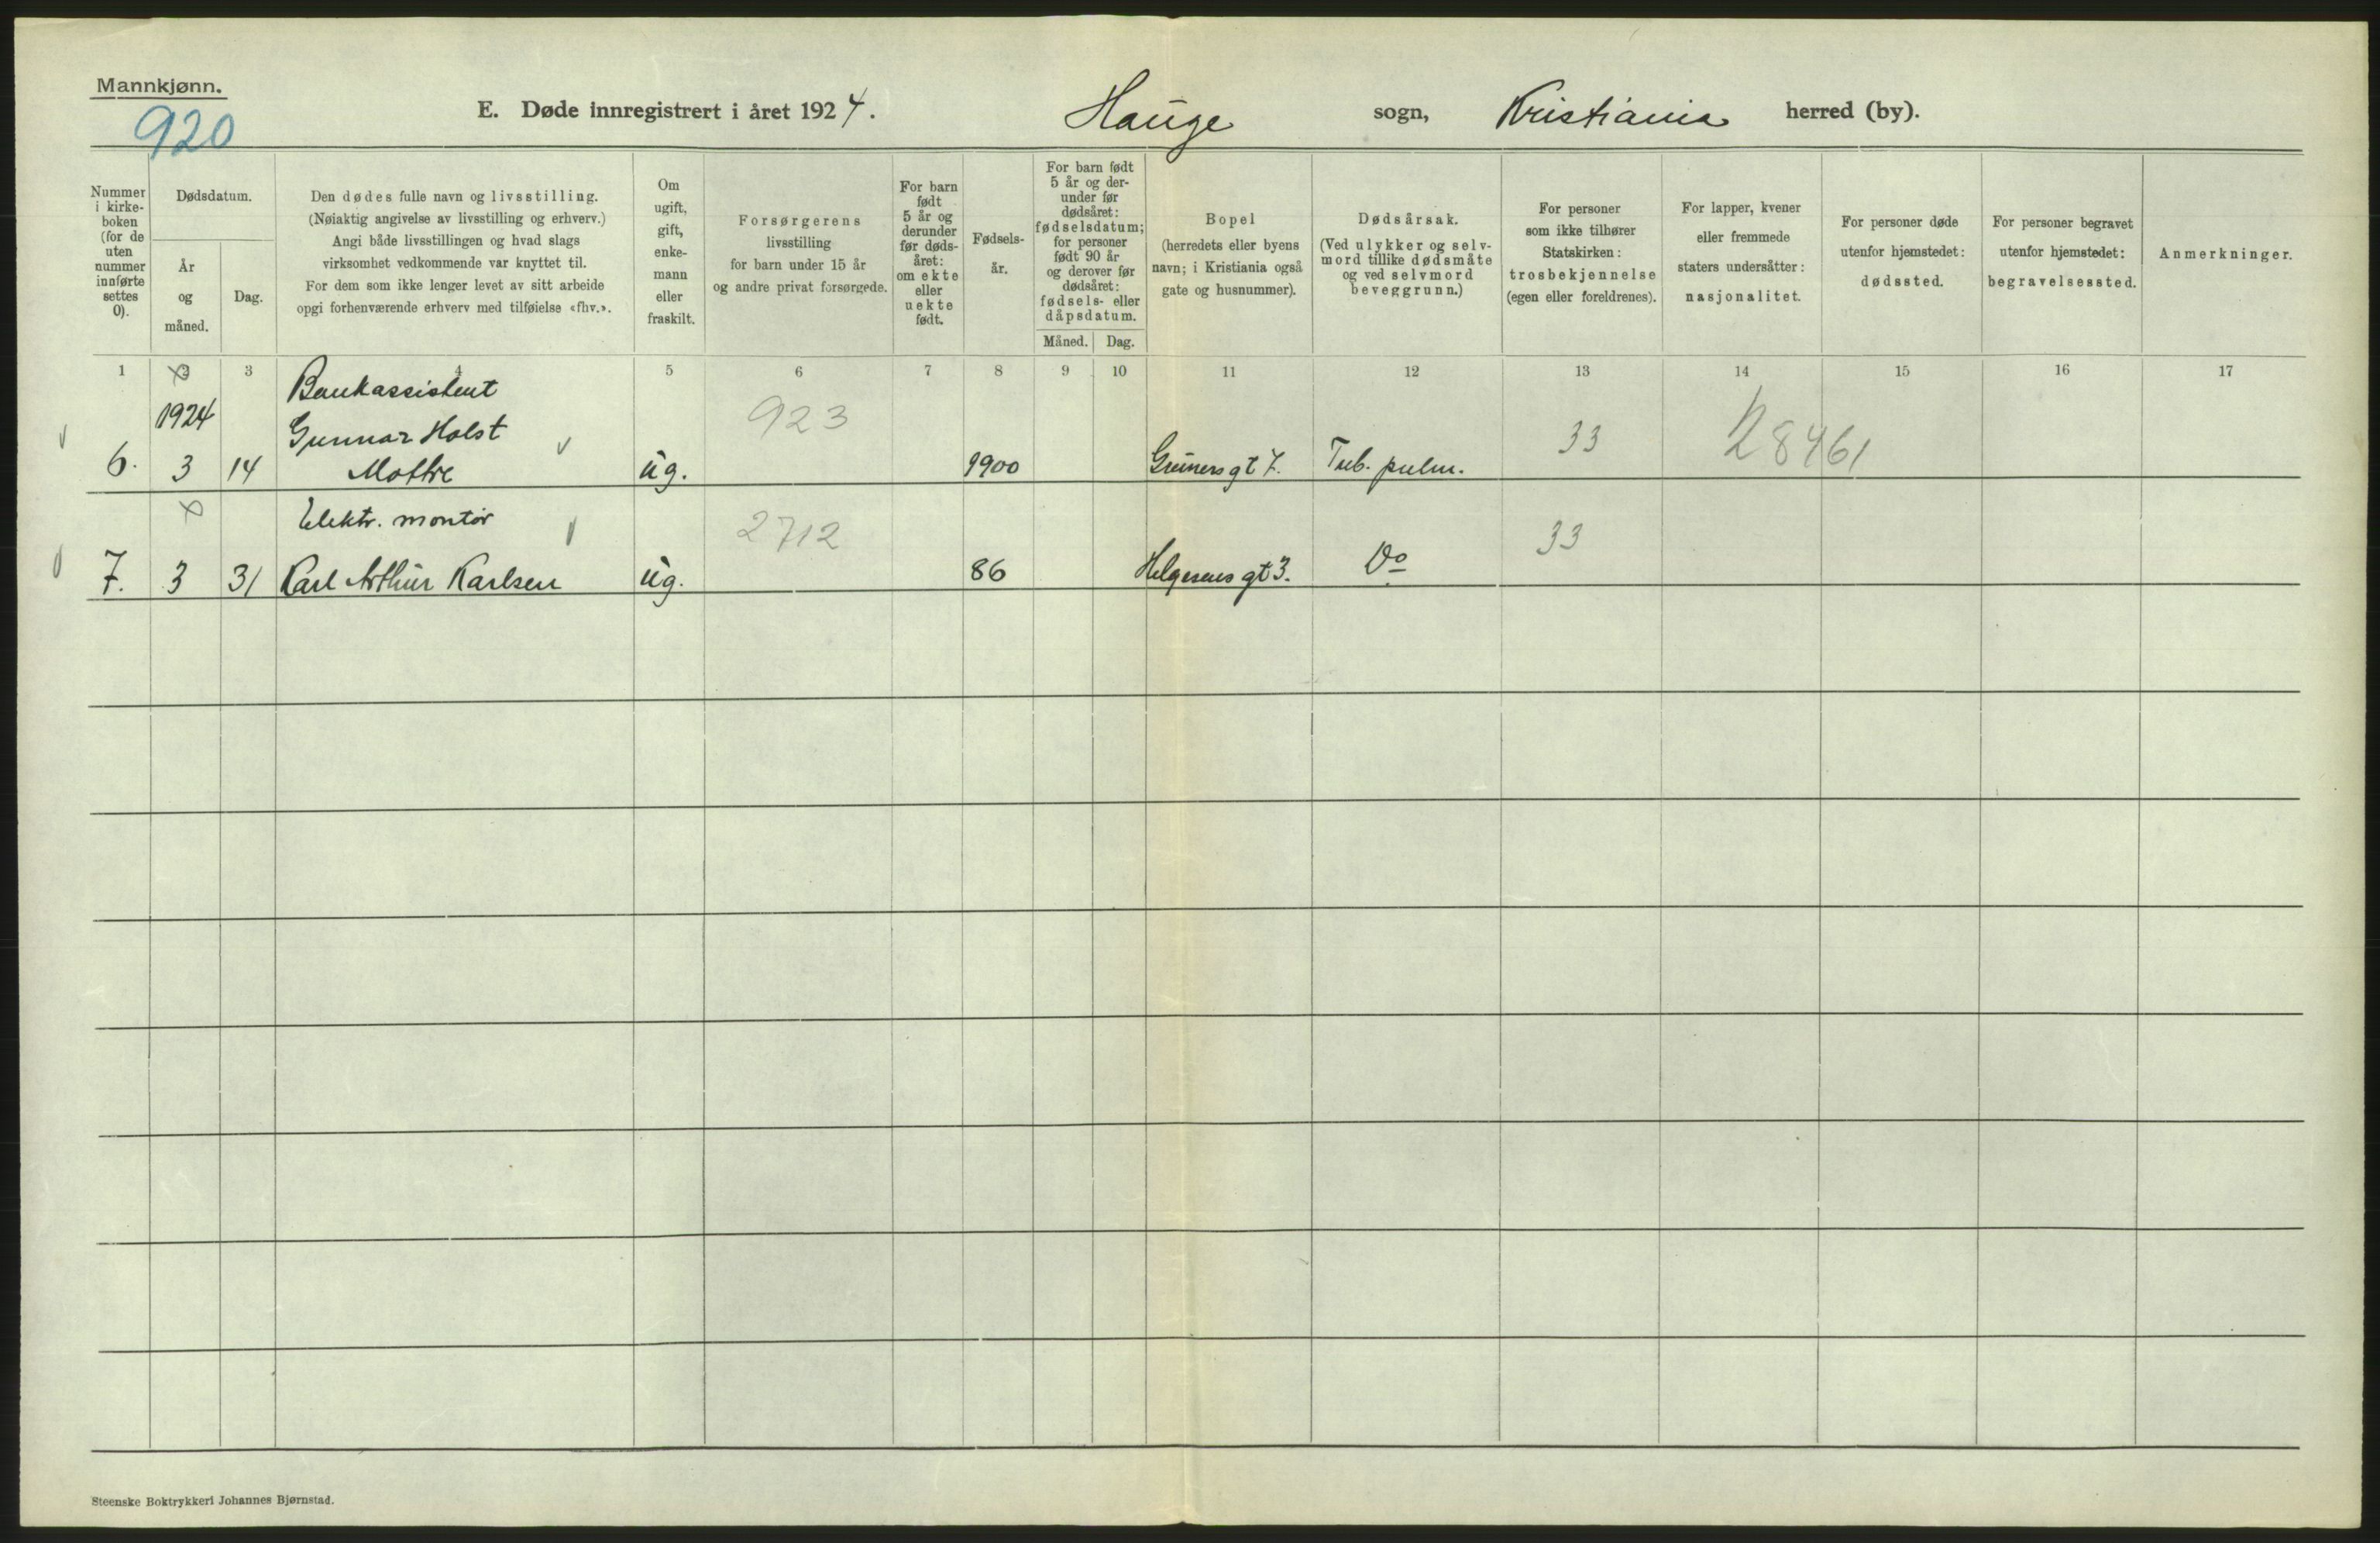 Mannkjønn.
920
E. Døde innregistrert i året 1924. Hauge sogn, Kristiania herred (by).
Nummer
i kirke-
boken
(for de
uten
nummer
innførte
settes
0).
Dødsdatum.
År
og
måned.
Dag.
Den dødes fulle navn og livsstilling.
(Nøiaktig angivelse av livsstilling og erhverv.)
Angi både livsstillingen og hvad slags
virksomhet vedkommende var knyttet til.
For dem som ikke lenger levet av sitt arbeide
opgi forhenværende erhverv med tilføielse «fhv.».
Om
ugift,
gift,
enke-
mann
eller
fraskilt.
Forsørgerens
livsstilling
for barn under 15 år
og andre privat forsørgede.
For barn
født
5 år og
derunder
før døds-
året:
om ekte
eller
uekte
født.
Fødsels-
år.
For barn født
5 år og der-
under før
dødsåret:
fødselsdatum;
for personer
født 90 år
og derover før
dødsåret:
fødsels- eller
dåpsdatum.
Måned. Dag.
Bopel
(herredets eller byens
navn; i Kristiania også
gate og husnummer).
Dødsårsak.
(Ved ulykker og selv-
mord tillike dødsmåte
og ved selvmord
beveggrunn.)
For personer
som ikke tilhører
Statskirken:
trosbekjennelse
(egen eller foreldrenes).
For lapper, kvener
eller fremmede
staters undersåtter:
nasjonalitet.
For personer døde
utenfor hjemstedet:
dødssted.
For personer begravet
utenfor hjemstedet:
begravelsessted.
Anmerkninger.
1 2 3 4 5 6 7 8 9 10 11 12 13 14 15 16 17
Bankassistent
1924 Gunnar Holst 923 33 28461
6. 3 14 ug. 1900 Grünersgt 7. Tub. pulm.
Elektr. montör 2712 33
7. 3 31 Karl Arthur Karlsen ug. 86 Helgesens gt 3. Do
Steenske Boktrykkeri Johannes Bjørnstad.